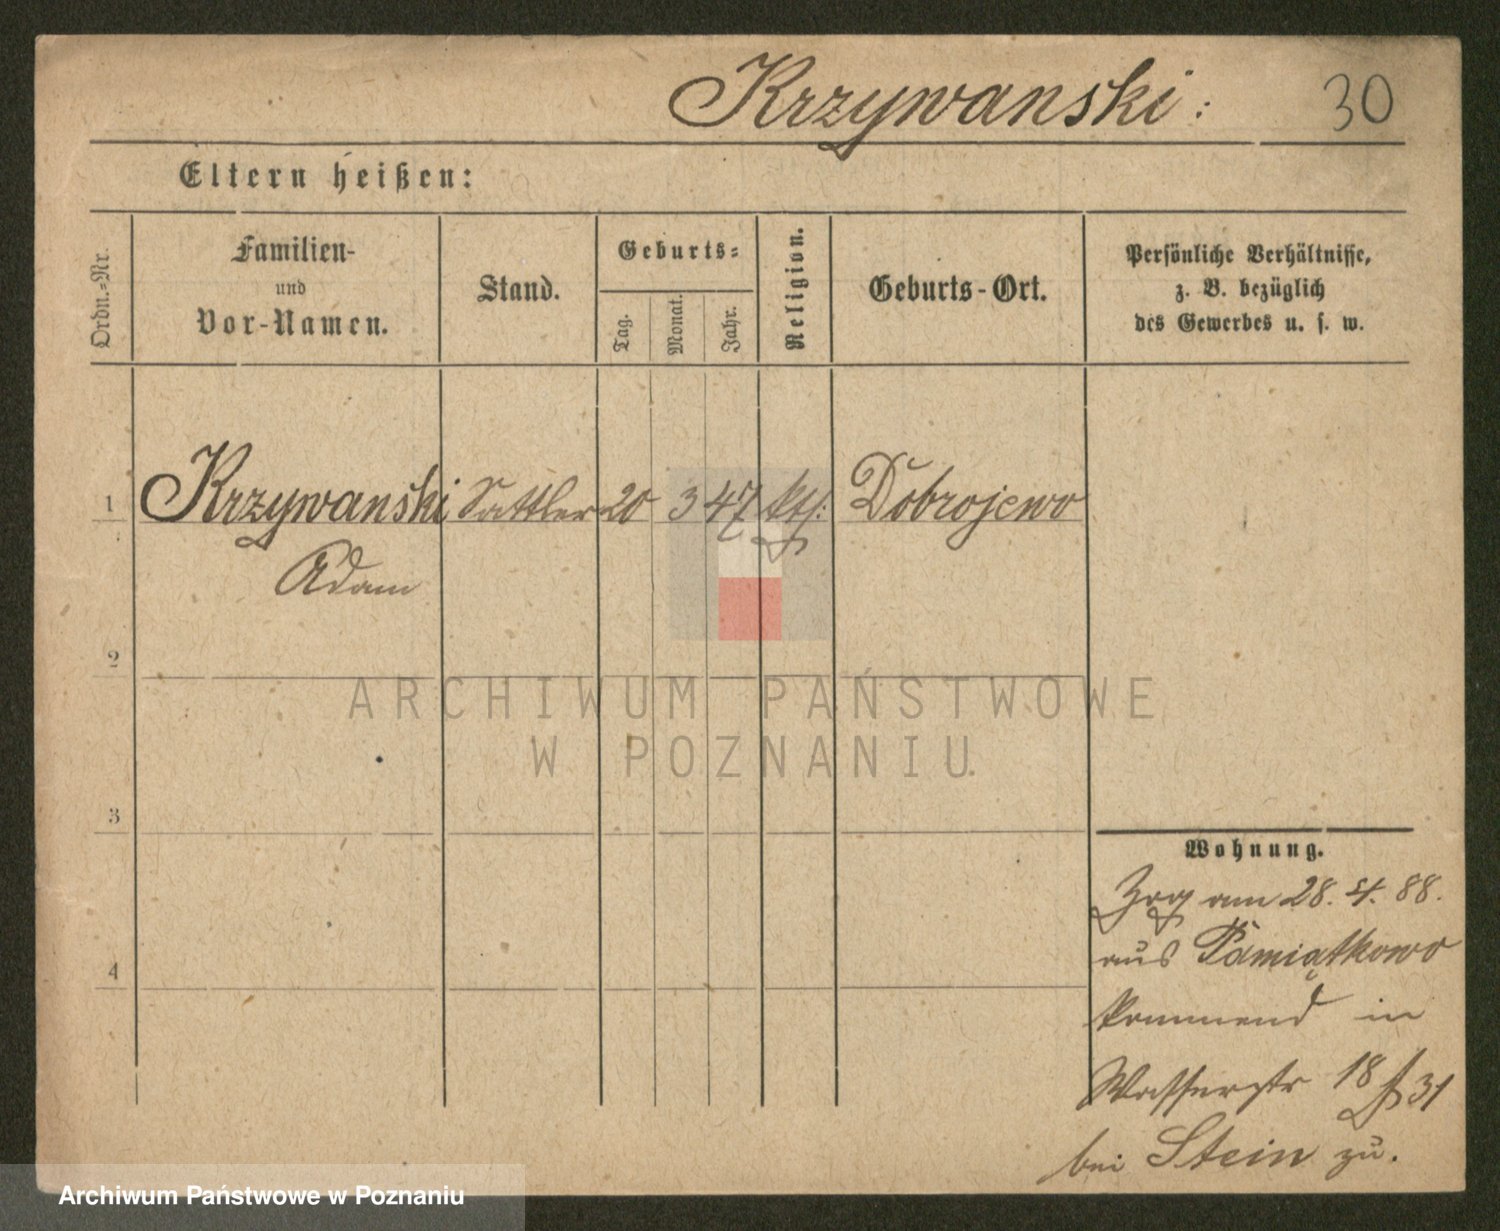 Krzywanski: 30
Eltern heißen:
Ordn.-Nr.
Familien-
und
Vor-Namen.
Stand.
Geburts-
Tag.
Monat.
Jahr.
Religion.
Geburts-Ort.
Persönliche Verhältnisse,
z. B. bezüglich
des Gewerbes u. s. w.
1 Krzywanski Sattler 20 3 47 kth: Dobrojewo
Adam
2
3
4
ARCHIWUM PAŃSTWOWE
W POZNANIU
Wohnung.
Zog am 28. 4. 88.
aus Pamiątkowo
kommend in
Wasserstr 18 31
bei Stein zu.
Archiwum Państwowe w Poznaniu